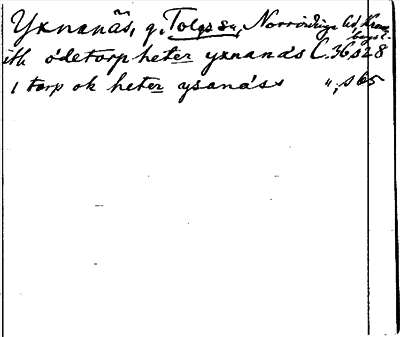 Yxnanäs, g. Tolgs sn, Norrvidinge hd, Kronobergs l.
itt ödetorp heter yxnanás C. 36, s 28
1 torp ok heter ysanás " , s 65